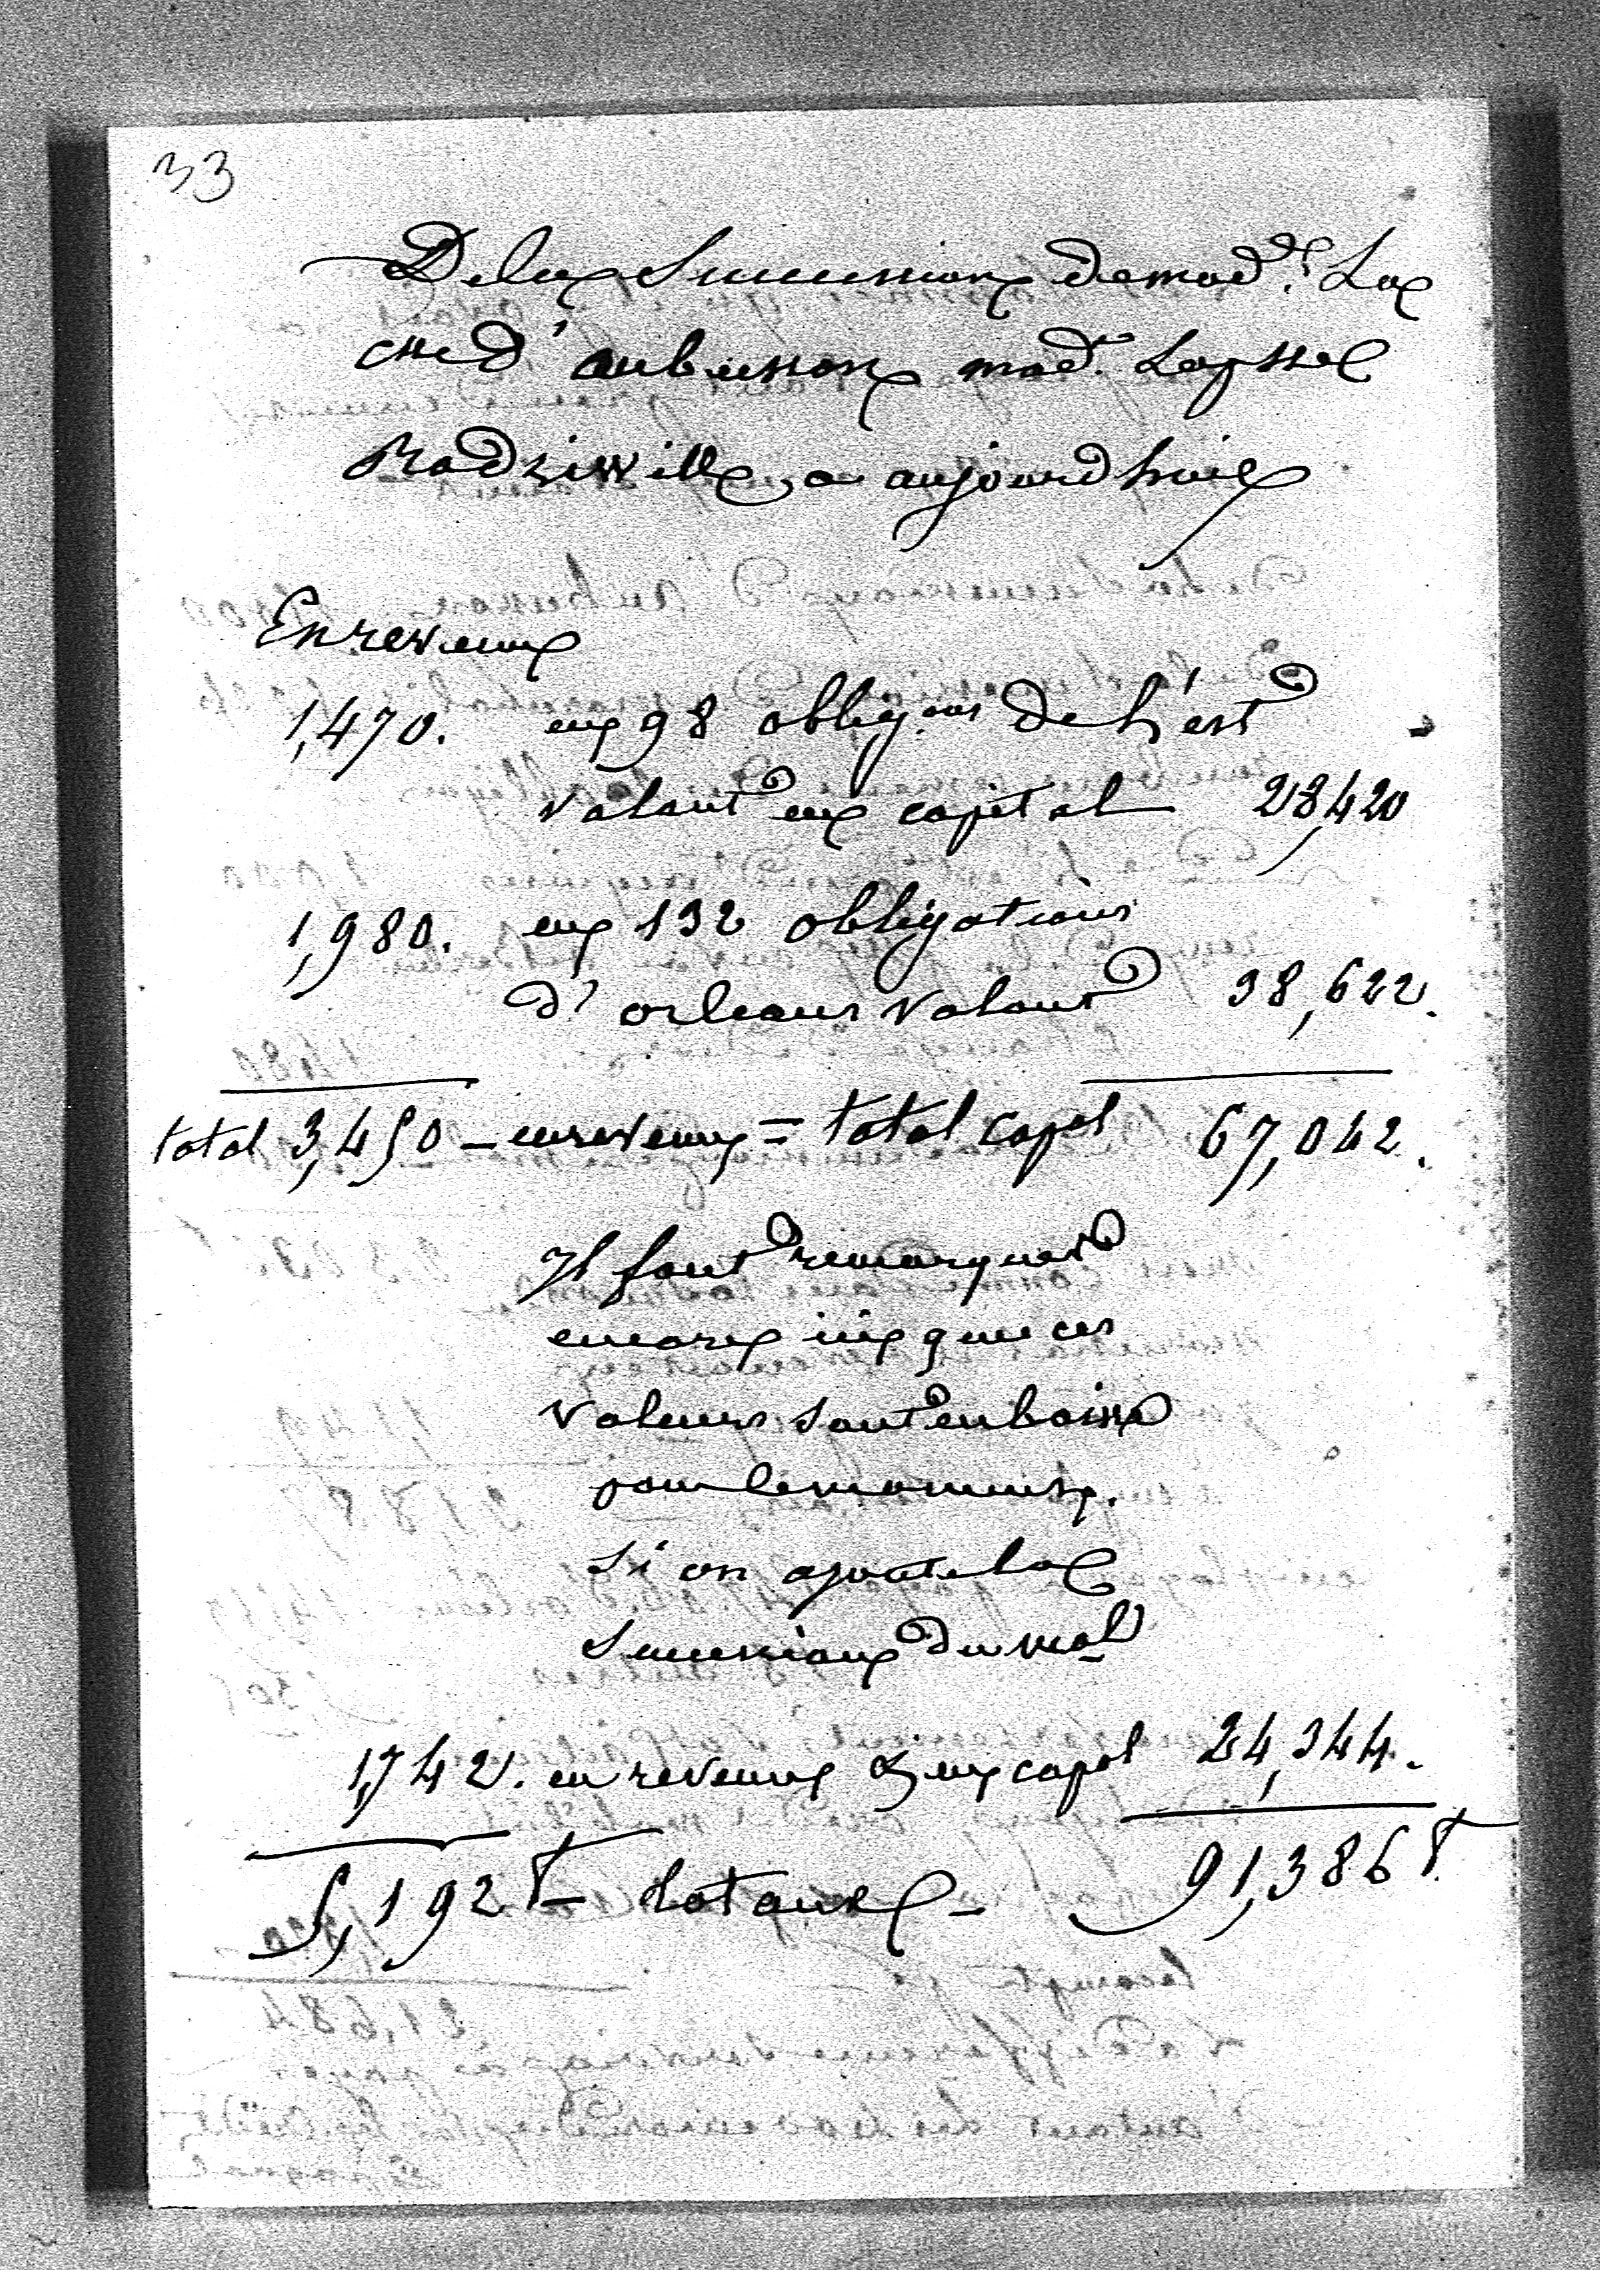 33
De la Succession de mad.e La
csse d'aubusson mad.e La psse
Radziwill a aujourdhui
En revenu
1,470. en 98 oblig.ons de l'est
valant en capital 28,420
1,980. en 132 obligations
d'orleans valant 38,622.
total 3,450 - en revenu = total capal 67,042.
Il faut remarquer
encore ici que ces
valeurs sont en baisse
pour le moment.
Si on ajoute la
Succession du mal
1,742. en revenu & en capal 24,344.
5,192 f - totaux - 91,386 f.